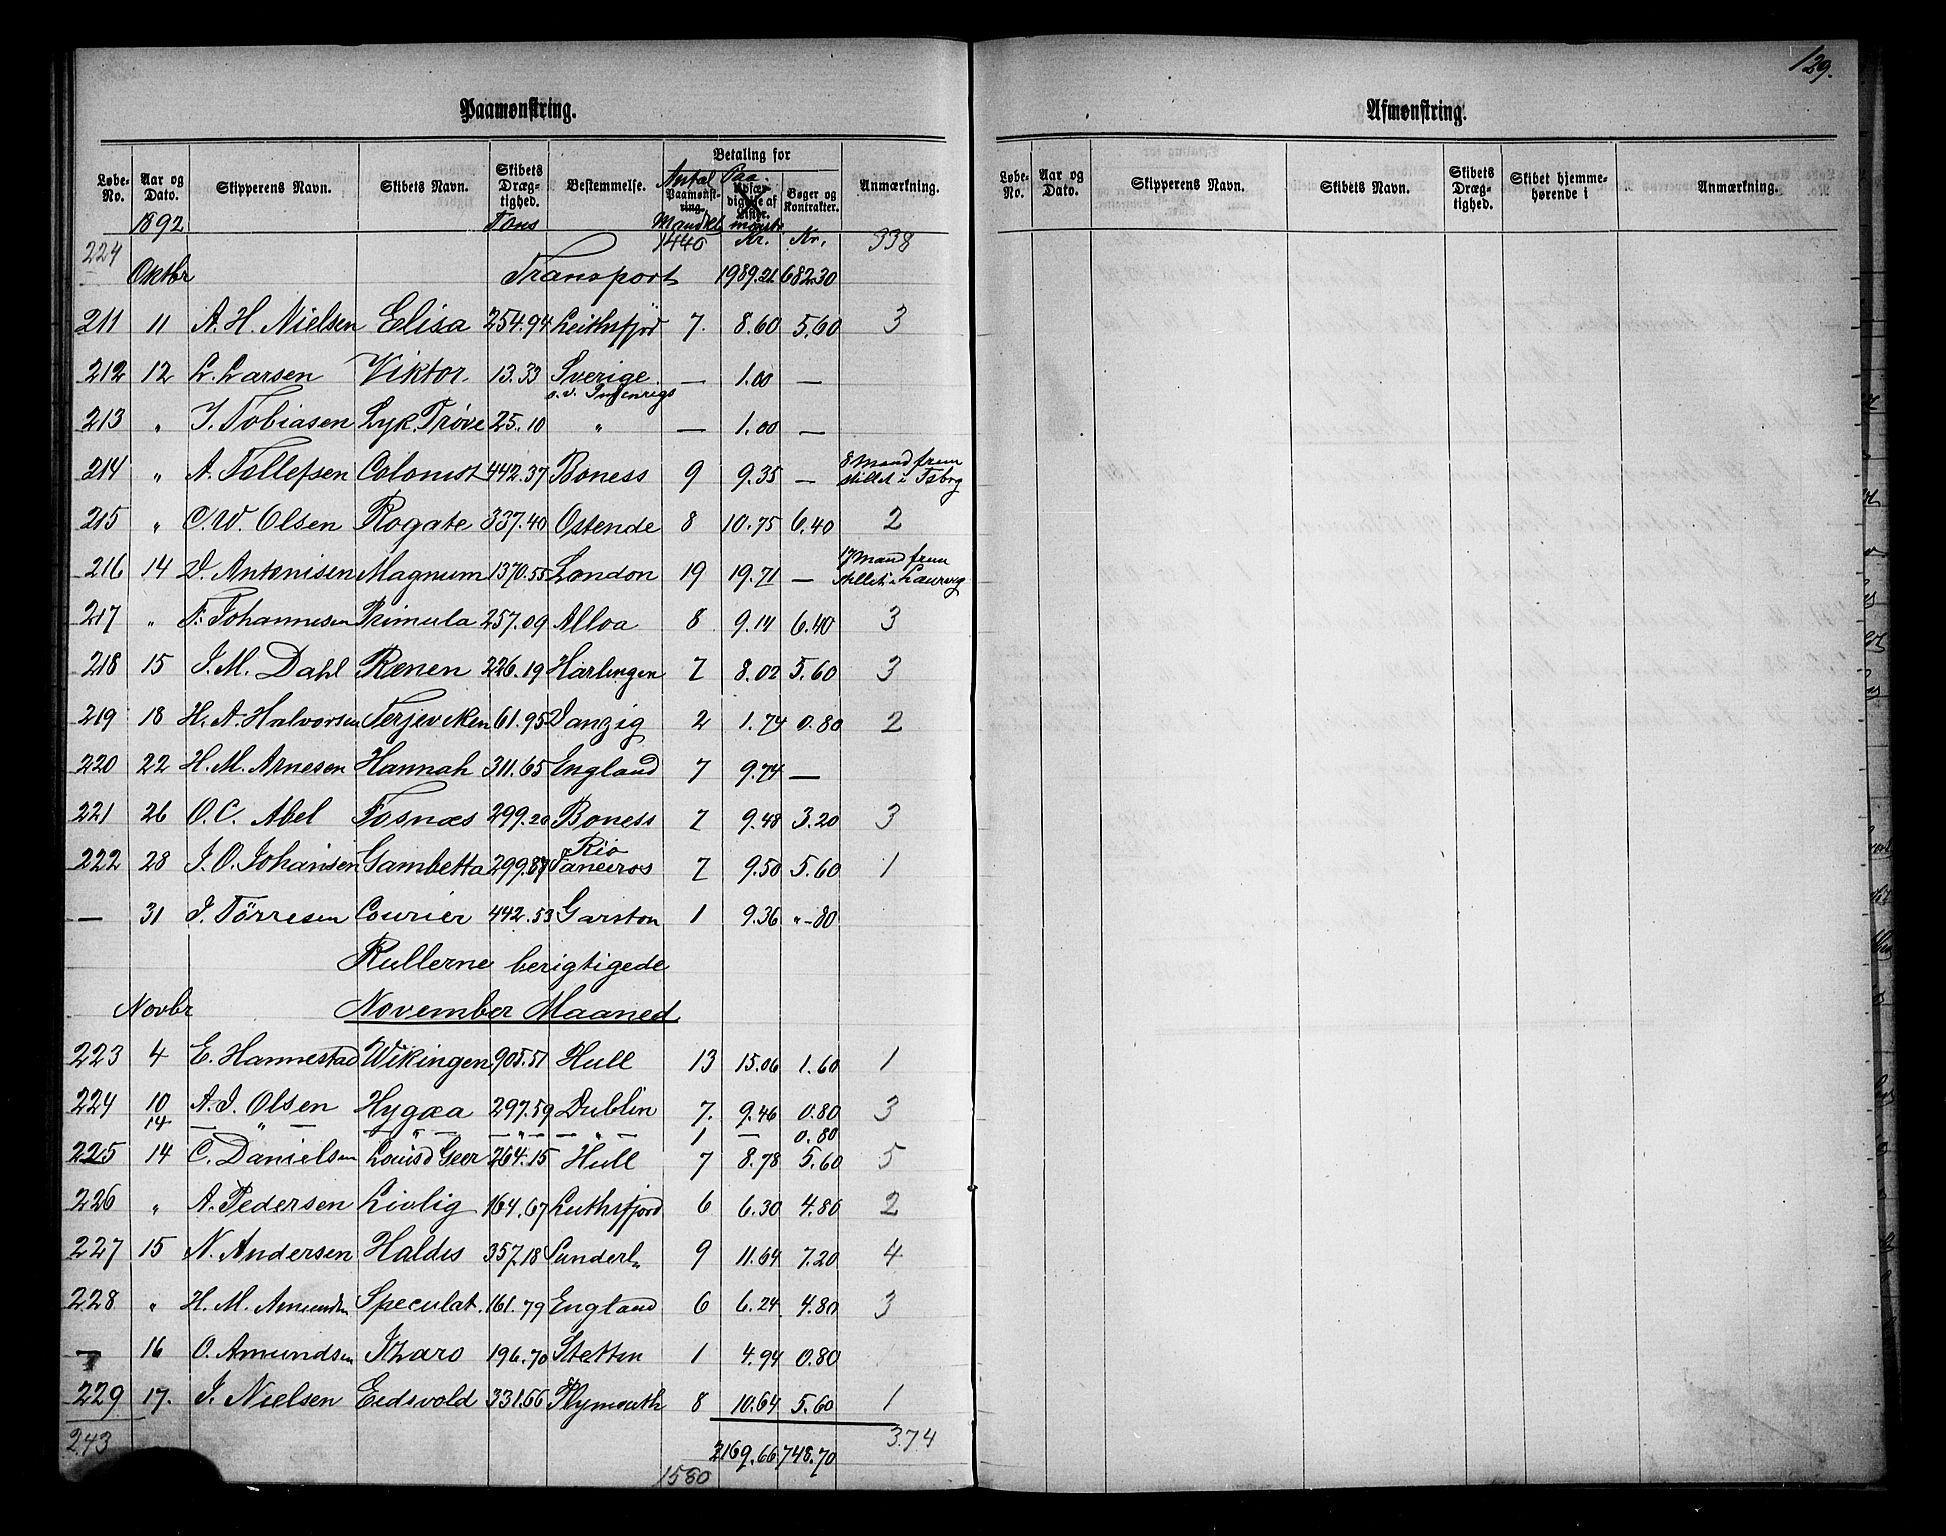 129.
Paamønstring.
Løbe-No. Aar og Dato. Skipperens Navn. Skibets Navn. Skibets Dræg-tighed. Bestemmelse. Betaling for Anmærkning.
Antal Paa-
Paamønst-ring. Udfær-digelse af Lister. Bøger og Kontrakter.
1892 Tons Mandsk mønstr
224 1440 Kr. Kr. 338
Oktbr Transport 1989.21 682.30
211 11 A. H. Nielsen Elisa 254.94 Leithsfjord 7. 8.60 5.60 3
212 12 L. Larsen Viktor. 13.33 Sverige — 1.00 —
o.v. Indenrigs
213 " J. Tobiasen Lyk. Prøve 25.10 " — 1.00 —
214 " A. Tollefsen Colonist 442.37 Boness 9 9.35 — 8 Mand frem stillet i Tsbrg
215 " C. W. Olsen Rogate 337.40 Ostende 8 10.75 6.40 2
216 14 D. Antonisen Magnum 1370.55 London 19 19.71 — 17 Mand frem stillet i Laurvig
217 " F. Johannesen Primula 257.09 Alloa 8 9.14 6.40 3
218 15 J. M. Dahl Rænen 226.19 Harlingen 7 8.02 5.60 3
219 18 H. A. Halvorsen Terjeviken 61.95 Danzig 2 1.74 0.80 2
220 22 H. M. Arnesen Hannah 311.65 England 7 9.74 —
221 26 O. C. Abel Fosnæs 299.20 Boness 7 9.48 3.20 3
222 28 J. O. Johansen Gambetta 299.87 Rio Janeiros 7 9.50 5.60 1
— 31 J. Törresen Courier 442.53 Garston 1 9.36 "-80
Rullerne berigtigede
Novbr November Maaned
223 4 E. Hannestad Wikingen 905.51 Hull 13 15.06 1.60 1
224 10 A. J. Olsen Hygæa 297.59 Dublin 7. 9.46 0.80 3
14 — " — — " — — " — — " — 1 — 0.80
225 14 C. Danielsen Louis d Geer 264.15 Hull 7 8.78 5.60 5
226 " A. Pedersen Livlig 164.67 Leithsfjord 6 6.30 4.80 2
227 15 N. Andersen Haldis 357.18 Sunderln 9 11.64 7.20 4
228 " H. M. Amundsn Speculat. 161.79 England 6 6.24 4.80 3
— 16 O. Amundsen Izaro 196.70 Stettin 1 4.94 0.80
229 17. J. Nielsen Eidsvold 331.66 Plymouth 8 10.64 5.60 1
243 2169.66 748.70 374
1580
Afmønstring.
Løbe-No. Aar og Dato. Skipperens Navn. Skibets Navn. Skibets Dræg-tighed. Skibet hjemme-hørende i Anmærkning.